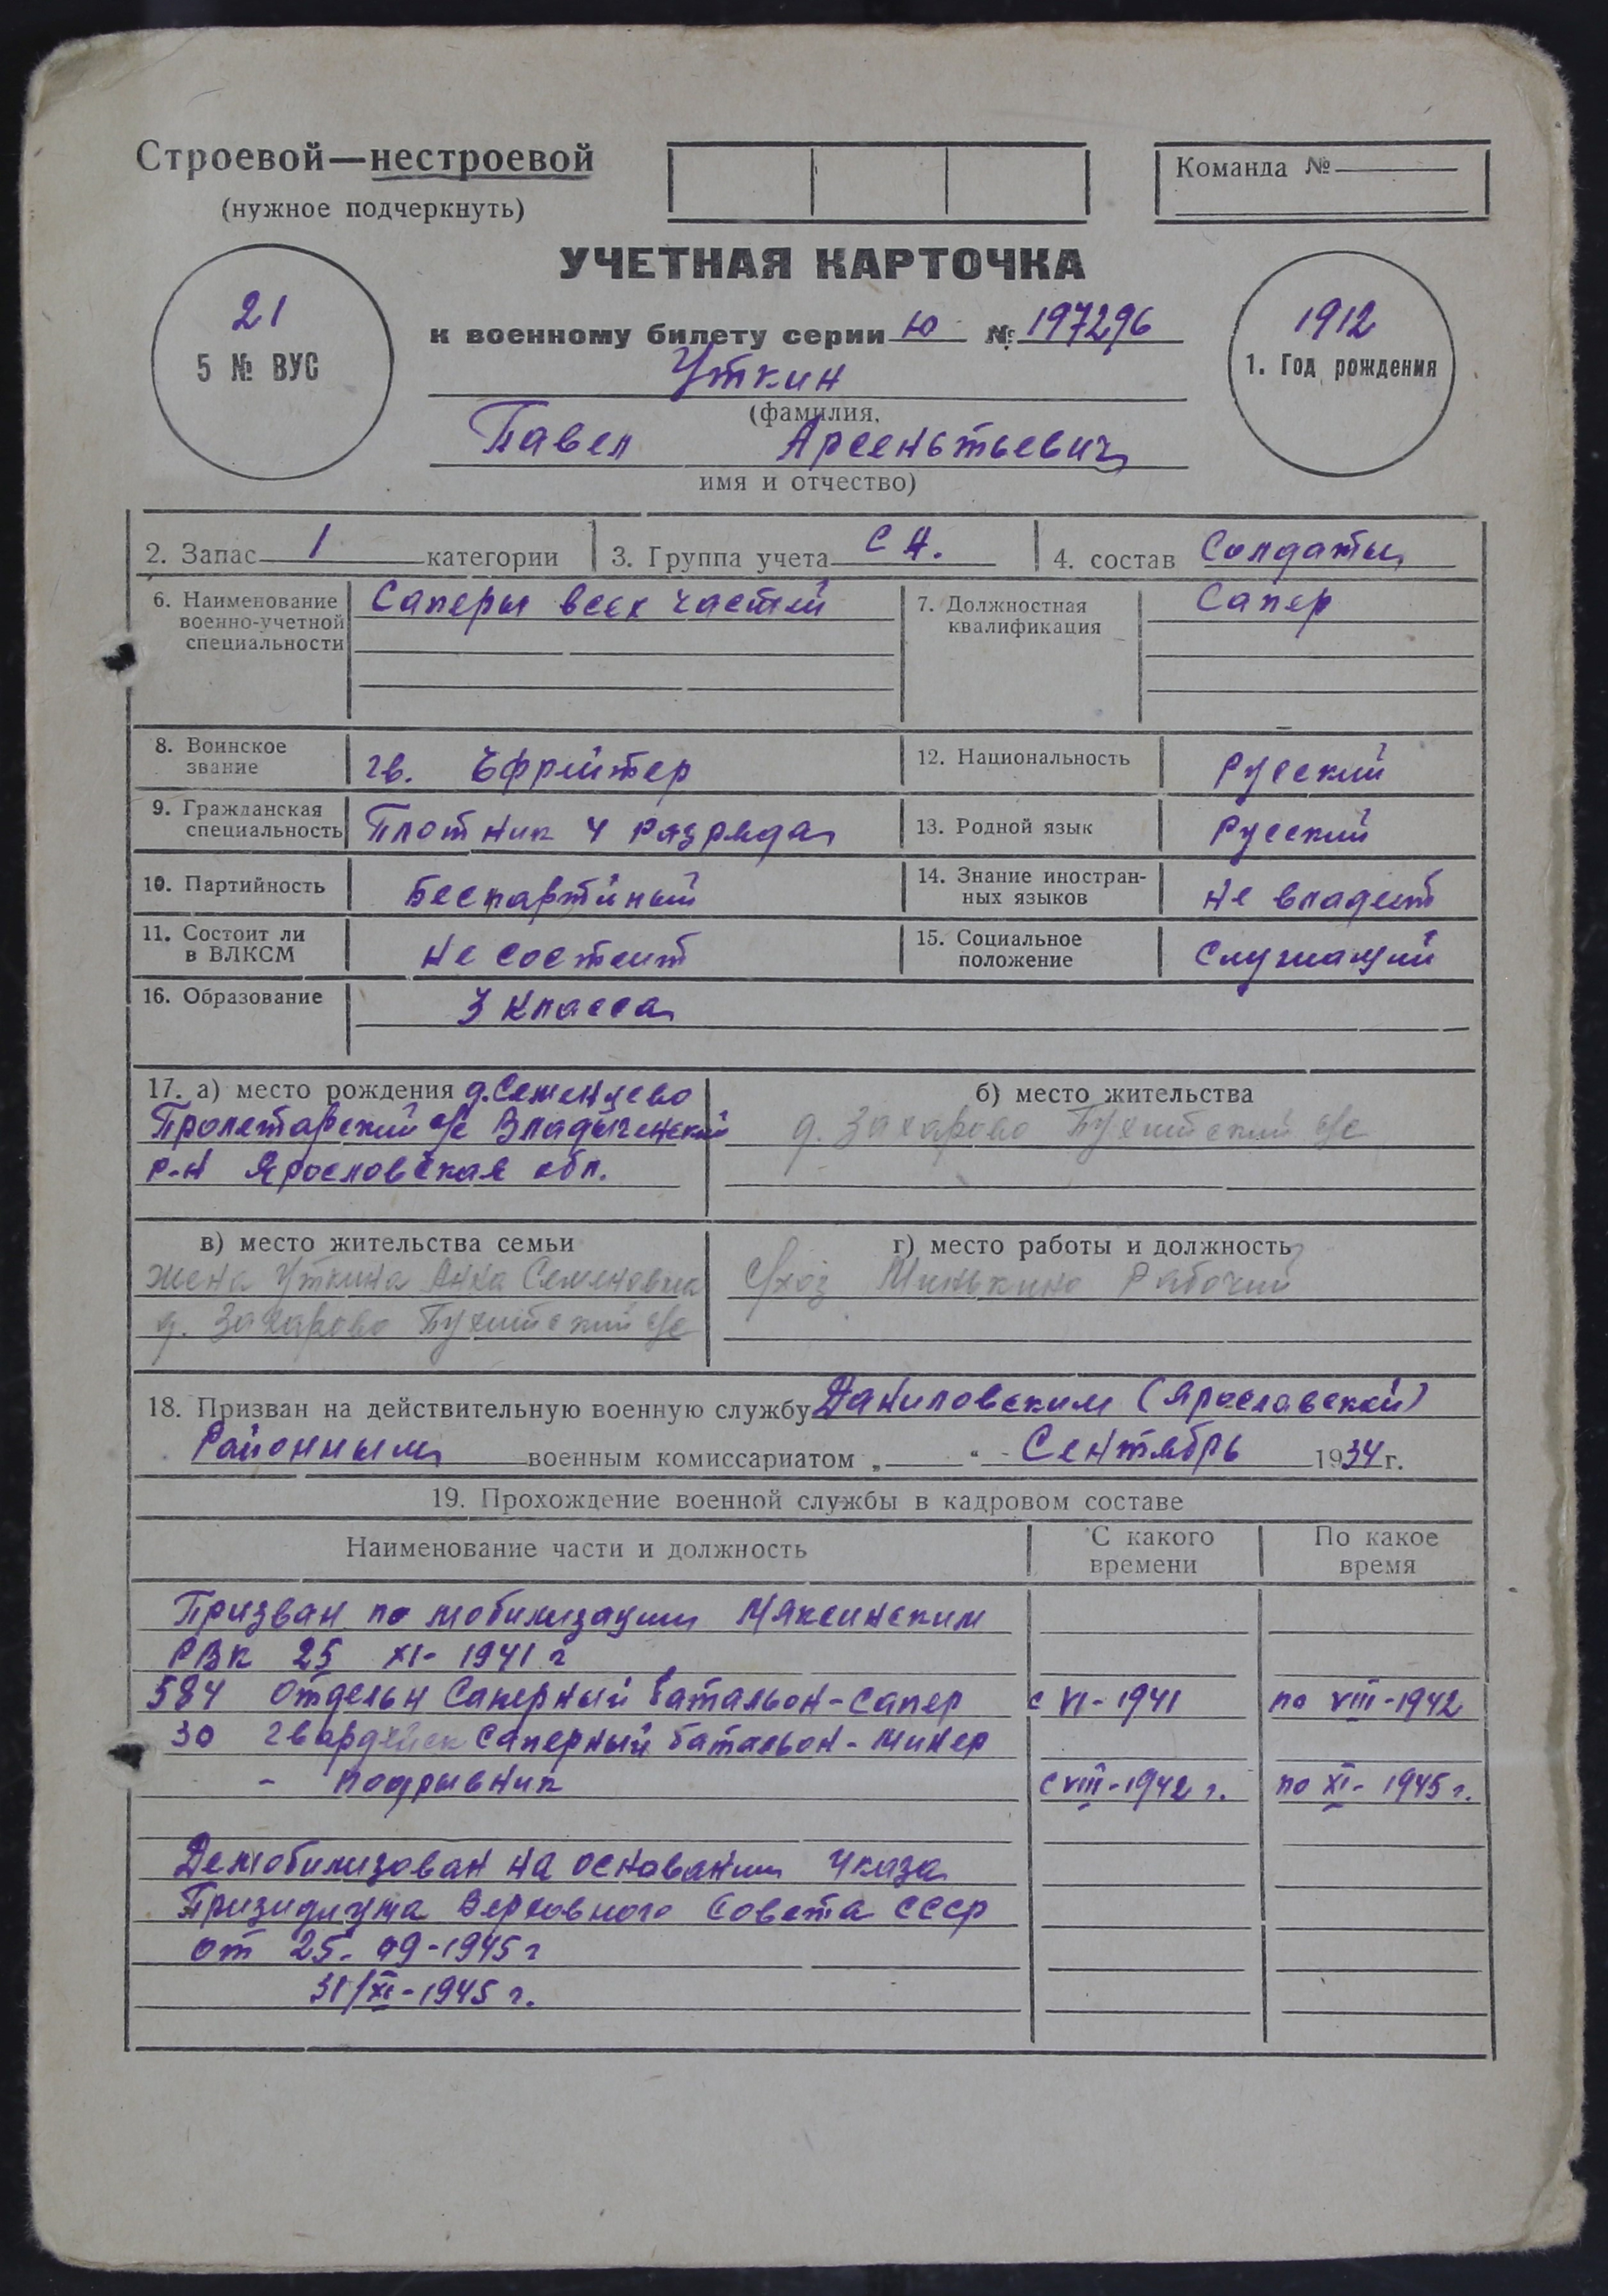 Строевой—нестроевой
(нужное подчеркнуть)
Команда №
УЧЕТНАЯ КАРТОЧКА
21
5 № ВУС
к военному билету серии Ю № 197296
1912
1. Год рождения
Уткин
(фамилия,
Павел Арсеньтьевич
имя и отчество)
2. Запас 1 категории
3. Группа учета СА.
4. состав Солдаты
6. Наименование
военно-учетной
специальности
Саперы всех частей
7. Должностная
квалификация
Сапер
8. Воинское
звание
гв. Ефрейтер
12. Национальность
Русский
9. Гражданская
специальность
Плотник 4 разряда
13. Родной язык
Русский
10. Партийность
Беспартйный
14. Знание иностран-
ных языков
Не владеет
11. Состоит ли
в ВЛКСМ
Не состоит
15. Социальное
положение
Служащий
16. Образование
3 класса
17. а) место рождения д. Семенцево
Пролетарский с/с Владыченский
р-н Ярословская обл.
б) место жительства
д. Захарово с/с
в) место жительства семьи
жена Уткина Анна Семеновна
д. Захарово с/с
г) место работы и должность
с/хоз Минькино Рабочий
18. Призван на действительную военную службу Даниловским (Ярославской)
Районным военным комиссариатом „ “ - Сентябрь 1934 г.
19. Прохождение военной службы в кадровом составе
Наименование части и должность
С какого
времени
По какое
время
Призван по мобилизации Мяксинским
РВК 25 XI- 1941 г
584 Отдельн Саперный батальон-сапер с VI-1941 по VIII-1942
30 гвардейск саперный батальон - минер
- подрывник с VIII-1942 г. по XI- 1945 г.
Демобилизован на основании Указа
Призидиума Верховного Совета СССР
от 25.09-1945 г
31/XI-1945 г.